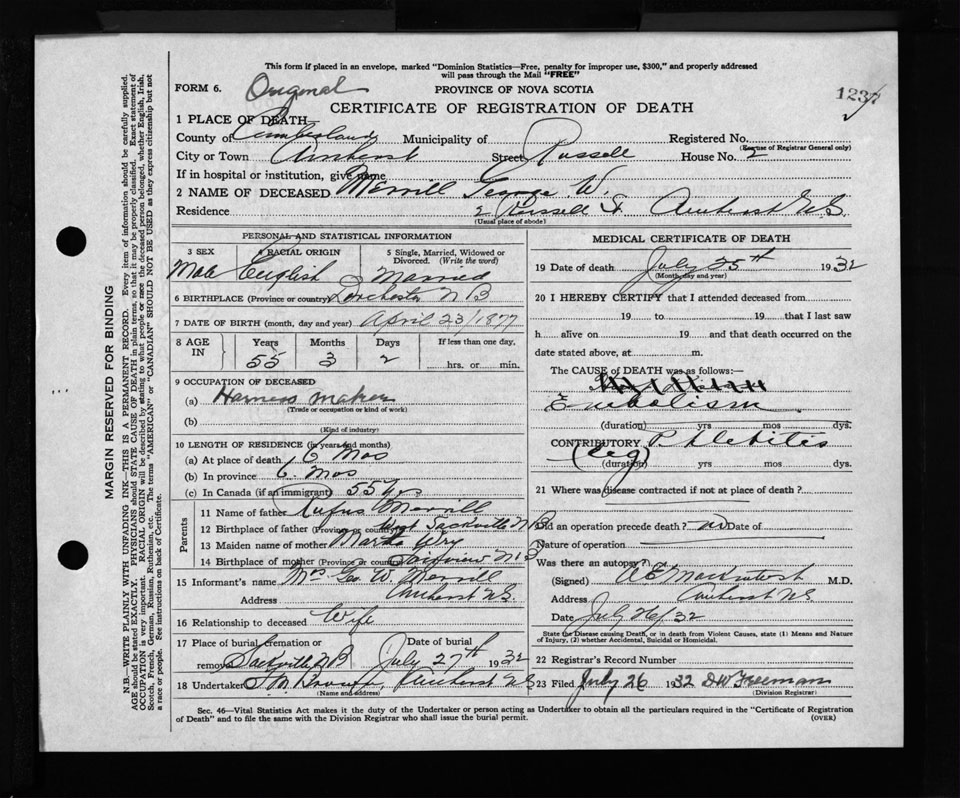 This form if placed in an envelope, marked "Dominion Statistics—Free, penalty for improper use, $300," and properly addressed
will pass through the Mail "FREE"
FORM 6. Original PROVINCE OF NOVA SCOTIA
1237
CERTIFICATE OF REGISTRATION OF DEATH
1 PLACE OF DEATH
County of Cumberland Municipality of Registered No.
(For use of Registrar General only)
City or Town Amherst Street Russell House No. 2
If in hospital or institution, give name
2 NAME OF DECEASED Merrill George W.
Residence 2 Russell St Amherst N.S.
(Usual place of abode)
PERSONAL AND STATISTICAL INFORMATION
3 SEX 4 RACIAL ORIGIN 5 Single, Married, Widowed or
Divorced. (Write the word)
English Married
6 BIRTHPLACE (Province or country) Dorchester N B
7 DATE OF BIRTH (month, day and year) April 23/1877
8 AGE IN Years Months Days If less than one day,
55 3 2 hrs. or min.
9 OCCUPATION OF DECEASED
(a) Harness maker
(Trade or occupation or kind of work)
(b)
(Kind of industry)
10 LENGTH OF RESIDENCE (in years and months)
(a) At place of death 6 Mos
(b) In province 6 Mos
(c) In Canada (if an immigrant) 55 yrs
Parents
11 Name of father Rufus Merrill
12 Birthplace of father (Province or country) West Sackville N B
13 Maiden name of mother Wry
14 Birthplace of mother (Province or country) Fairview N B
15 Informant's name Mrs Geo W. Merrill
Address Amherst N.S.
16 Relationship to deceased Wife
17 Place of burial, cremation or Date of burial
removal Sackville N B July 27th 1932
18 Undertaker Amherst N S
(Name and address)
MEDICAL CERTIFICATE OF DEATH
19 Date of death July 25th 1932
(Month, day and year)
20 I HEREBY CERTIFY that I attended deceased from
19 to 19 that I last saw
h alive on 19 and that death occurred on the
date stated above, at m.
The CAUSE OF DEATH was as follows:—
Embolism
(duration) yrs mos dys.
CONTRIBUTORY Phlebitis
(leg)
(duration) yrs mos dys.
21 Where was disease contracted if not at place of death?
Did an operation precede death? no Date of
Nature of operation
Was there an autopsy?
(Signed) Mackintosh M.D.
Address Amherst N S
Date July 26/32
State the Disease causing Death, or in death from Violent Causes, state (1) Means and Nature
of Injury, (2) whether Accidental, Suicidal or Homicidal.
22 Registrar's Record Number
23 Filed July 26 1932 D W Freeman
(Division Registrar)
Sec. 46—Vital Statistics Act makes it the duty of the Undertaker or person acting as Undertaker to obtain all the particulars required in the "Certificate of Registration
of Death" and to file the same with the Division Registrar who shall issue the burial permit. (OVER)
MARGIN RESERVED FOR BINDING
N.B.—WRITE PLAINLY WITH UNFADING INK—THIS IS A PERMANENT RECORD. Every item of information should be carefully supplied.
AGE should be stated EXACTLY. PHYSICIANS should STATE CAUSE OF DEATH in plain terms, so that it may be properly classified. Exact statement of
OCCUPATION is very important. RACIAL ORIGIN will be described by stating to what people or race the deceased person belonged, whether English, Irish,
Scotch, French, German, Russian, Ruthenian, etc. The terms "AMERICAN" or "CANADIAN" SHOULD NOT BE USED as they express citizenship but not
a race or people. See instructions on back of Certificate.